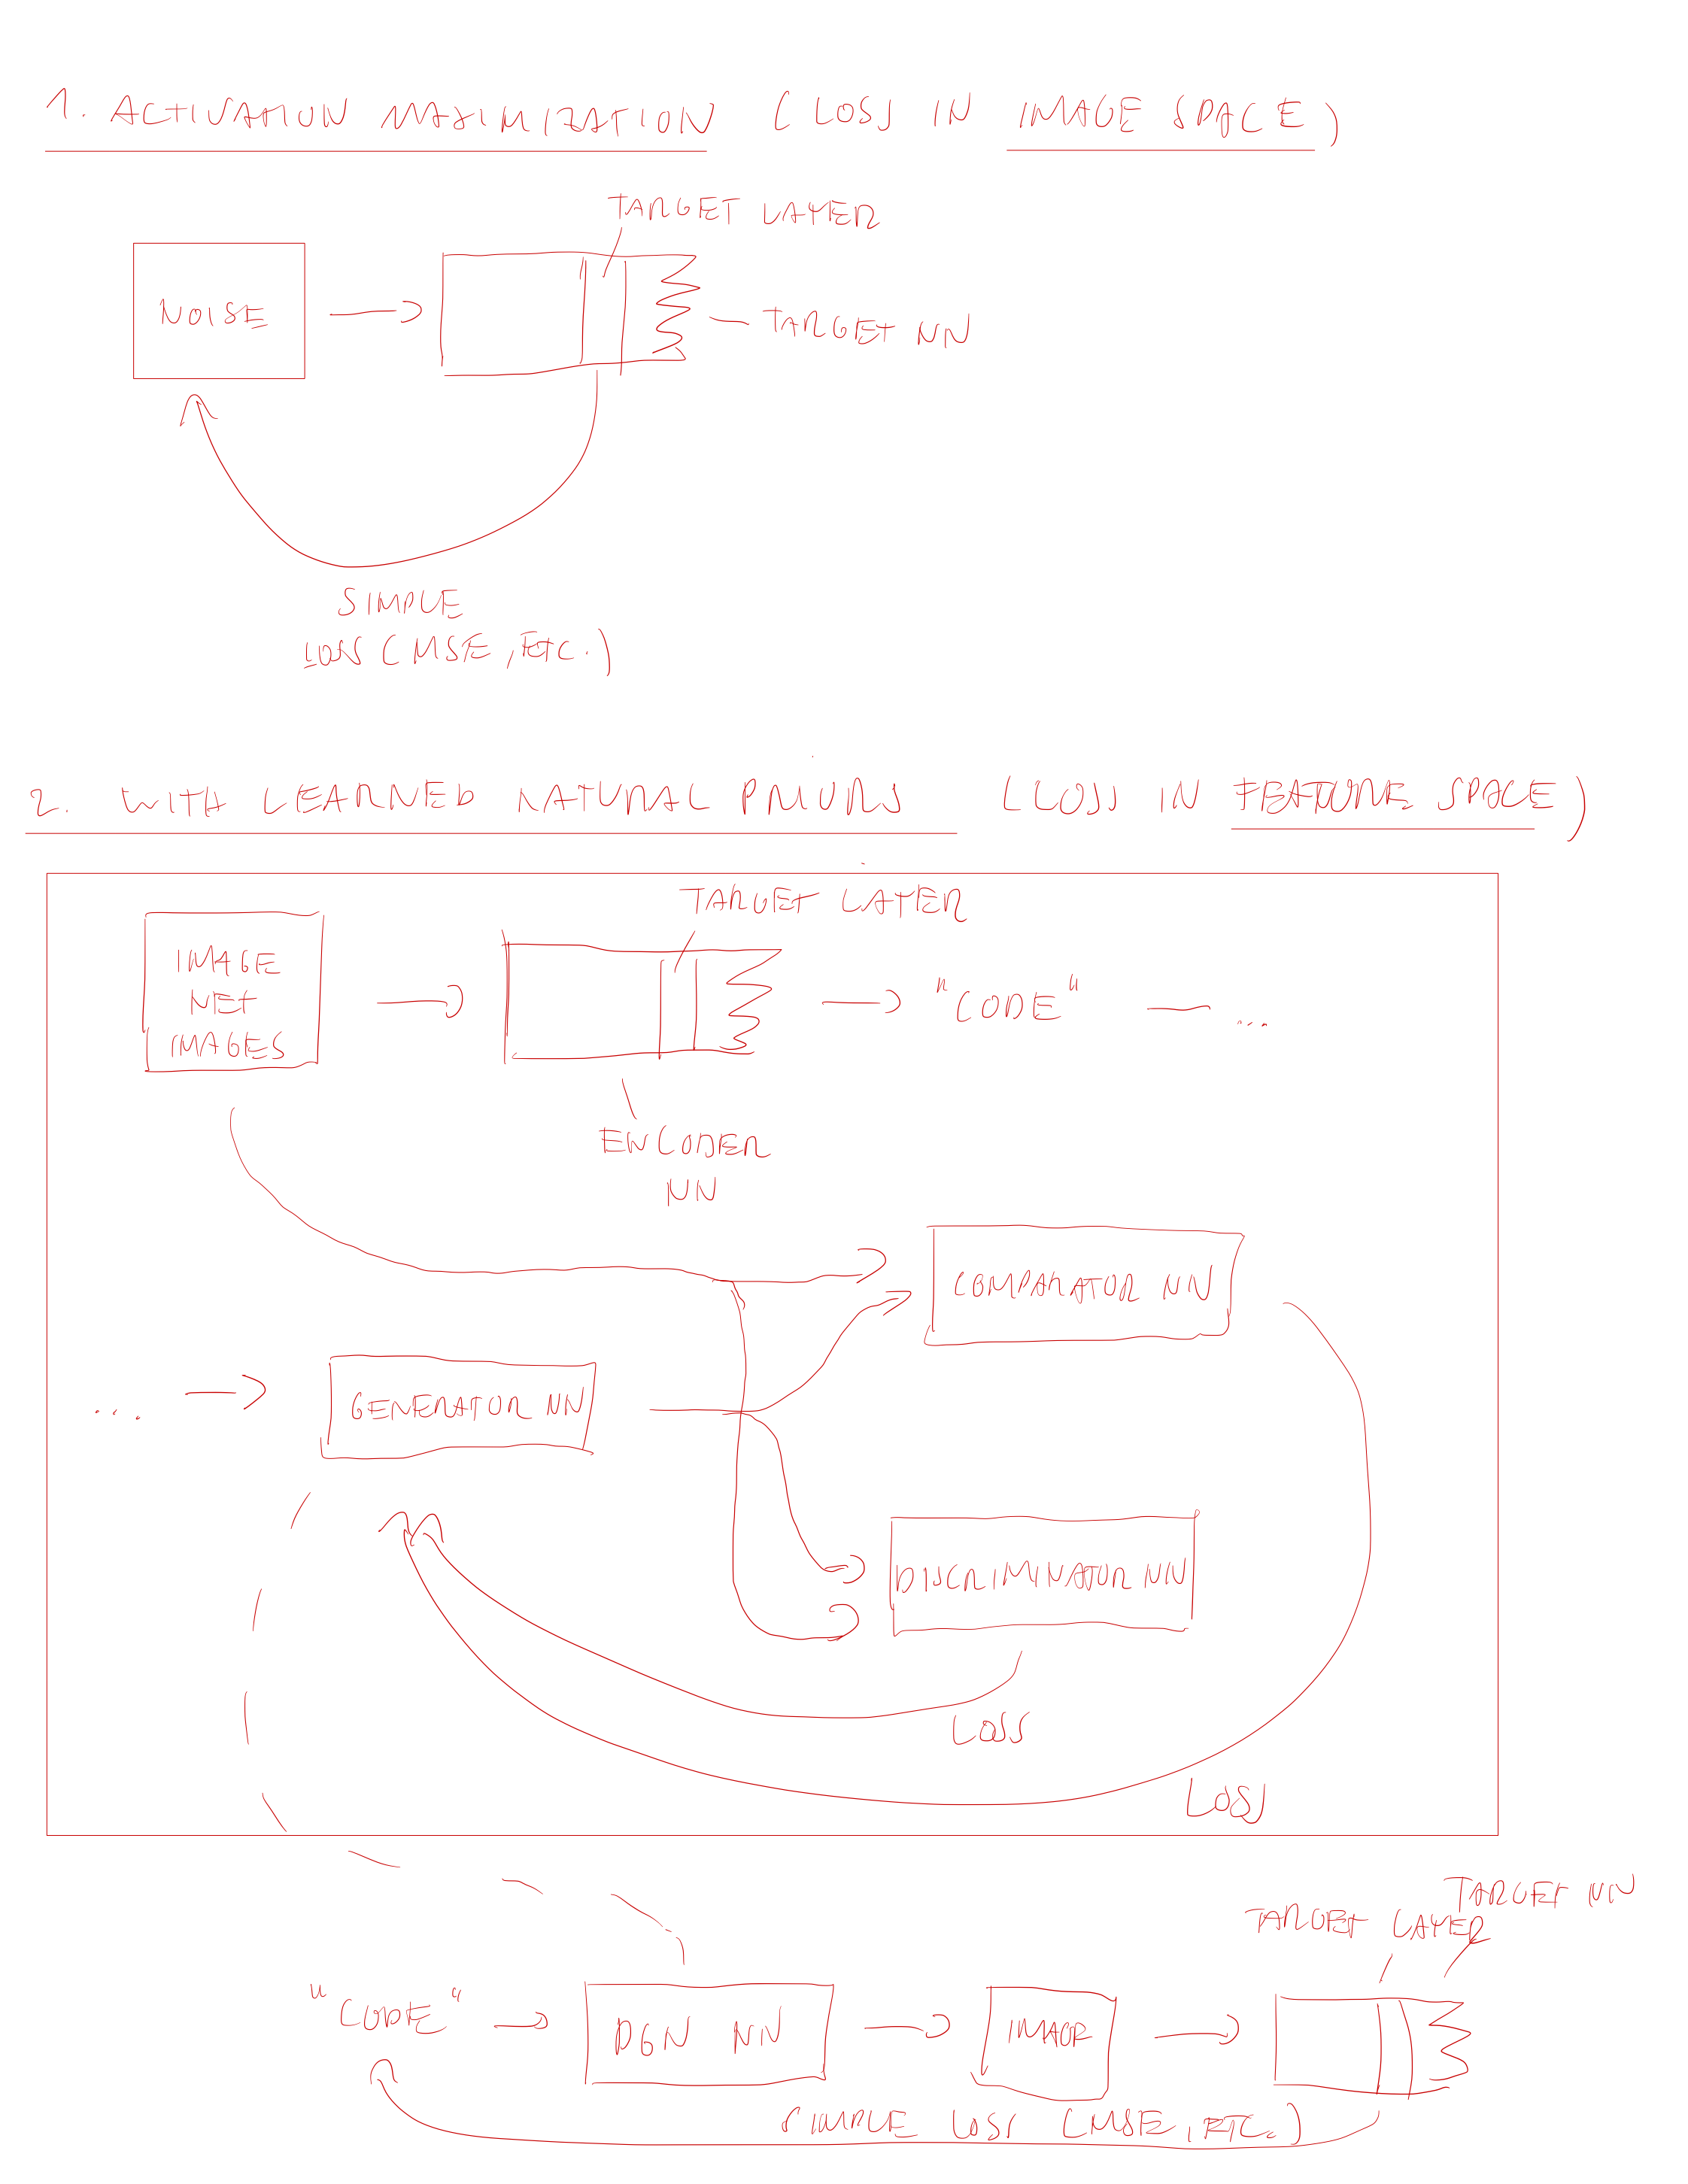 1. ACTIVATION MAXIMIZATION (LOSS IN IMAGE SPACE)
TARGET LAYER
NOISE
TARGET NN
SIMPLE
LOSS (MSE, ETC.)
2. WITH LEARNED NATURAL PRIORS (LOSS IN FEATURE SPACE)
TARGET LAYER
IMAGE
NET
IMAGES
"CODE"
...
ENCODER
NN
COMPARATOR NN
...
GENERATOR NN
DISCRIMINATOR NN
LOSS
LOSS
TARGET NN
TARGET LAYER
"CODE"
DGN NN
IMAGE
SIMPLE LOSS (MSE, ETC.)